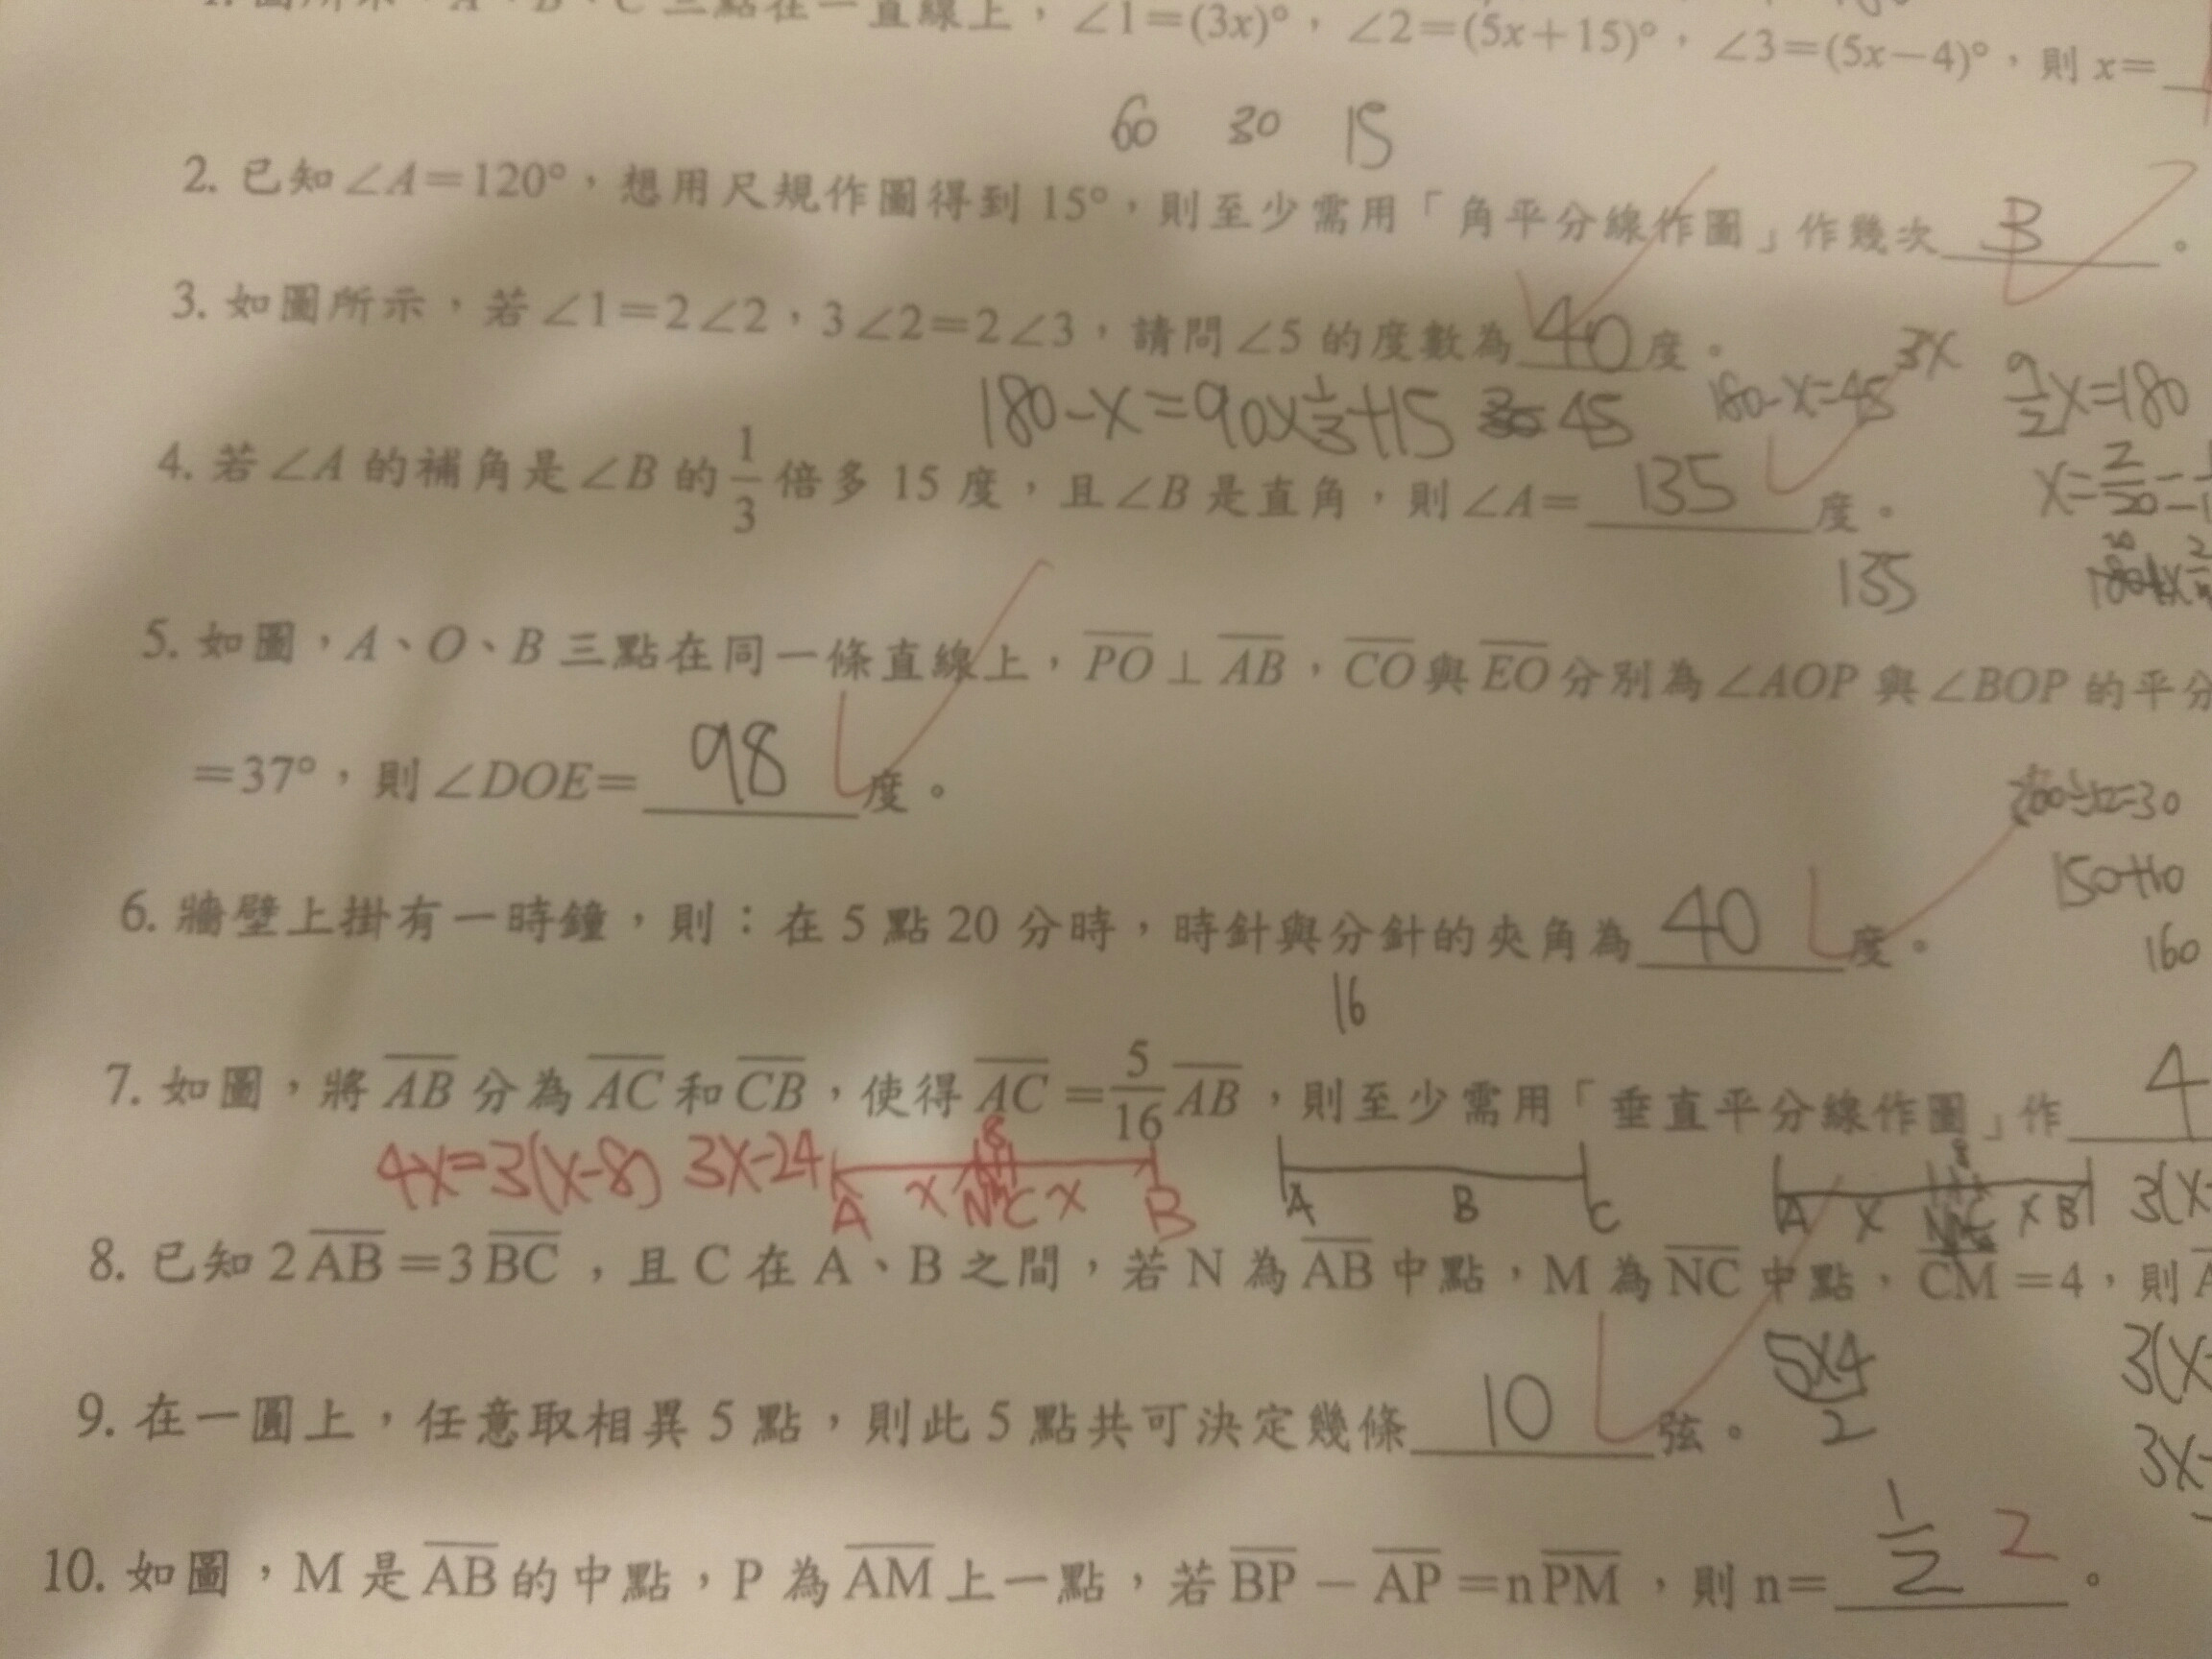 三點在一直線上，∠1=(3x)°，∠2=(5x+15)°，∠3=(5x-4)°，則 x=
60 30 15
2. 已知∠A=120°，想用尺規作圖得到 15°，則至少需用「角平分線作圖」作幾次 3 。
3. 如圖所示，若∠1=2∠2，3∠2=2∠3，請問∠5 的度數為 40 度。
3x
180-x=90×1/3+15 45
180-x=45
9/2x=180
4. 若∠A 的補角是∠B 的 1/3 倍多 15 度，且∠B 是直角，則∠A= 135 度。
135
5. 如圖，A、O、B 三點在同一條直線上，PO⊥AB，CO與EO分別為∠AOP 與∠BOP 的平分
=37°，則∠DOE= 98 度。
150+10
6. 牆壁上掛有一時鐘，則：在 5 點 20 分時，時針與分針的夾角為 40 度。
160
16
7. 如圖，將AB分為AC和CB，使得AC=5/16AB，則至少需用「垂直平分線作圖」作 4
4x=3(x-8) 3x-24
A x N M C x B
8
A B C
A x x B
8. 已知 2AB=3BC，且 C 在 A、B 之間，若 N 為AB中點，M 為NC中點，CM=4，則
5×4
2
9. 在一圓上，任意取相異 5 點，則此 5 點共可決定幾條 10 弦。
10. 如圖，M 是AB的中點，P 為AM上一點，若BP-AP=nPM，則 n= 1/2 2 。